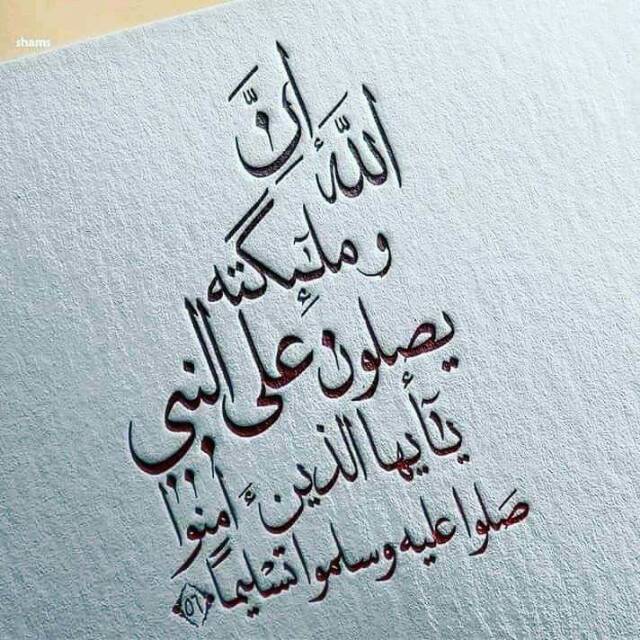 shams
إنَّ
اللَّهَ
وملٰٓئِكته
يصلون على النبي
يٰٓأيها الذين ءامنوا
صَلوا عليه وسلموا تسْليمًا ٥٦